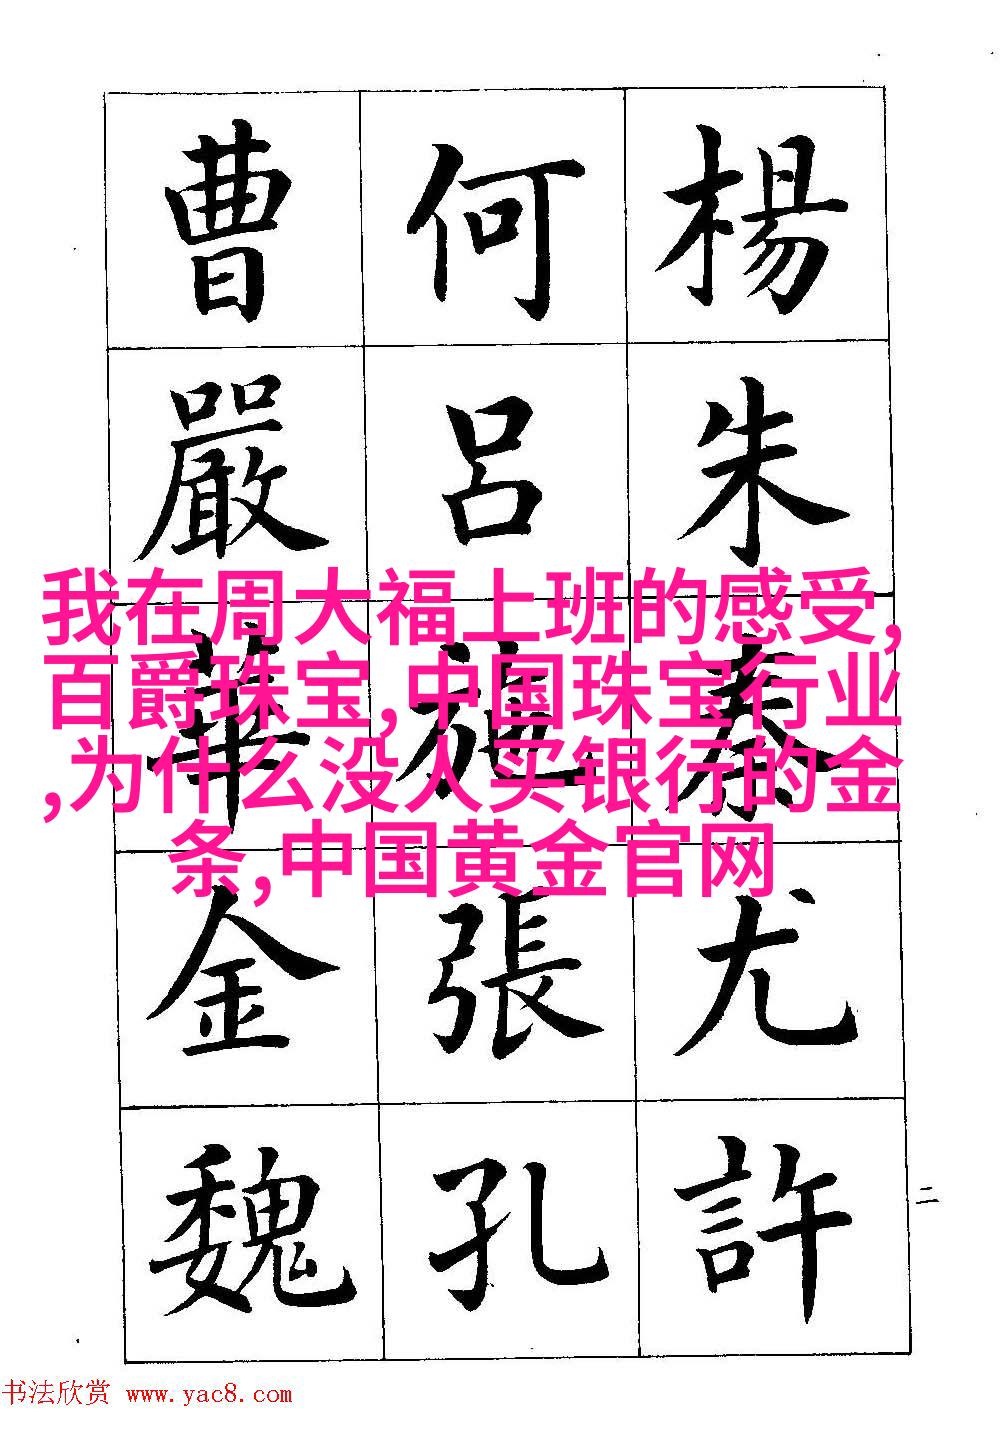 楊朱秦尤許
何呂施張孔
曹嚴華金魏
二
我在周大福上班的感受,
百爵珠宝,中国珠宝行业
,为什么没人买银行的金
条,中国黄金官网
书法欣赏 www.yac8.com